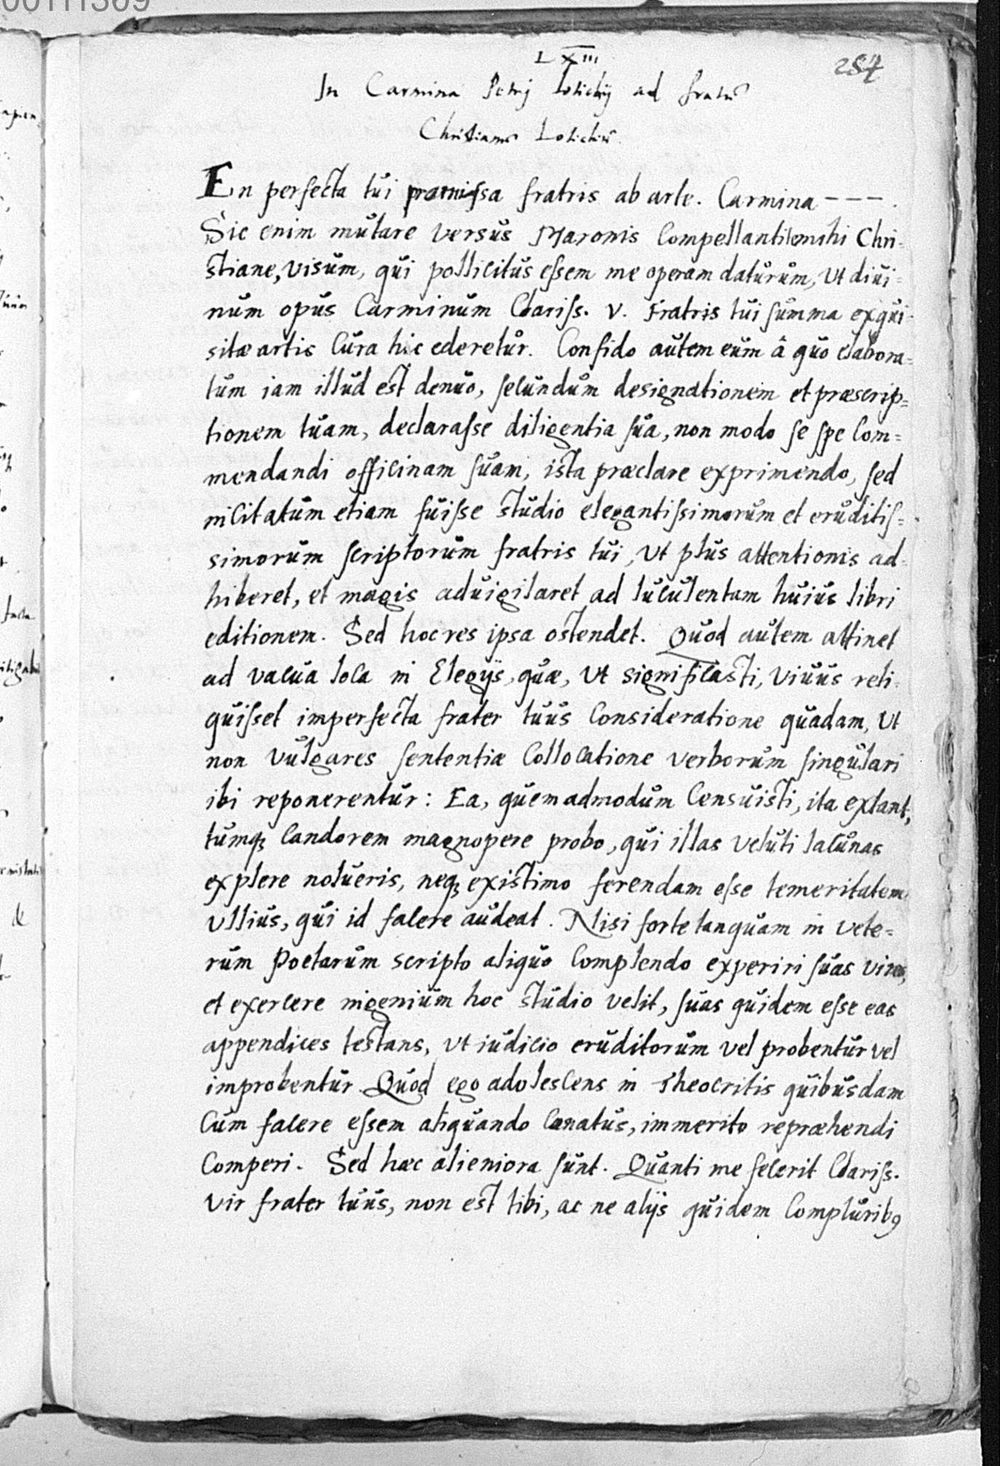 00111309
LXIII
284
In Carmina Petrj Lotichij ad fratrē
Christianū Lotichiū.
En perfecta tui præmissa fratris ab arte. Carmina ---.
Sic enim mutare versus Maronis compellanti mihi Chri-
stiane, visum, qui pollicitus essem me operam daturum, ut diui-
num opus Carminum Clariss. V. Fratris tui summa exqui-
sitæ artis cura hic ederetur. Confido autem eum â quo elabora=
tum iam illud est denuo, secundum designationem et præscrip=
tionem tuam, declarasse diligentia sua, non modo se spe com=
mendandi officinam suam, ista præclare exprimendo, sed
incitatum etiam fuisse studio elegantissimorum et eruditis=
simorum scriptorum fratris tui, ut plus attentionis ad-
hiberet, et magis aduigilaret ad luculentam huius libri
editionem. Sed hoc res ipsa ostendet. Quod autem attinet
ad vacua loca in Elegijs, quæ, ut significasti, viuus reli-
quisset imperfecta frater tuus consideratione quadam, ut
non vulgares sententiæ collocatione verborum singulari
ibi reponerentur: Ea, quemadmodum censuisti, ita extant,
tumq; candorem magnopere probo, qui illas veluti lacunas
explere nolueris, neq; existimo ferendam esse temeritatem
ullius, qui id facere audeat. Nisi forte tanquam in vete=
rum Poetarum scripto aliquo complendo experiri suas vires,
et exercere ingenium hoc studio velit, suas quidem esse eas
appendices testans, ut iudicio eruditorum vel probentur vel
improbentur. Quod ego adolescens in Theocritis quibusdam
cum facere essem aliquando conatus, immerito repræhendi
comperi. Sed hæc alieniora sunt. Quanti me fecerit Clariss.
vir frater tuus, non est tibi, ac ne alijs quidem compluribꝯ